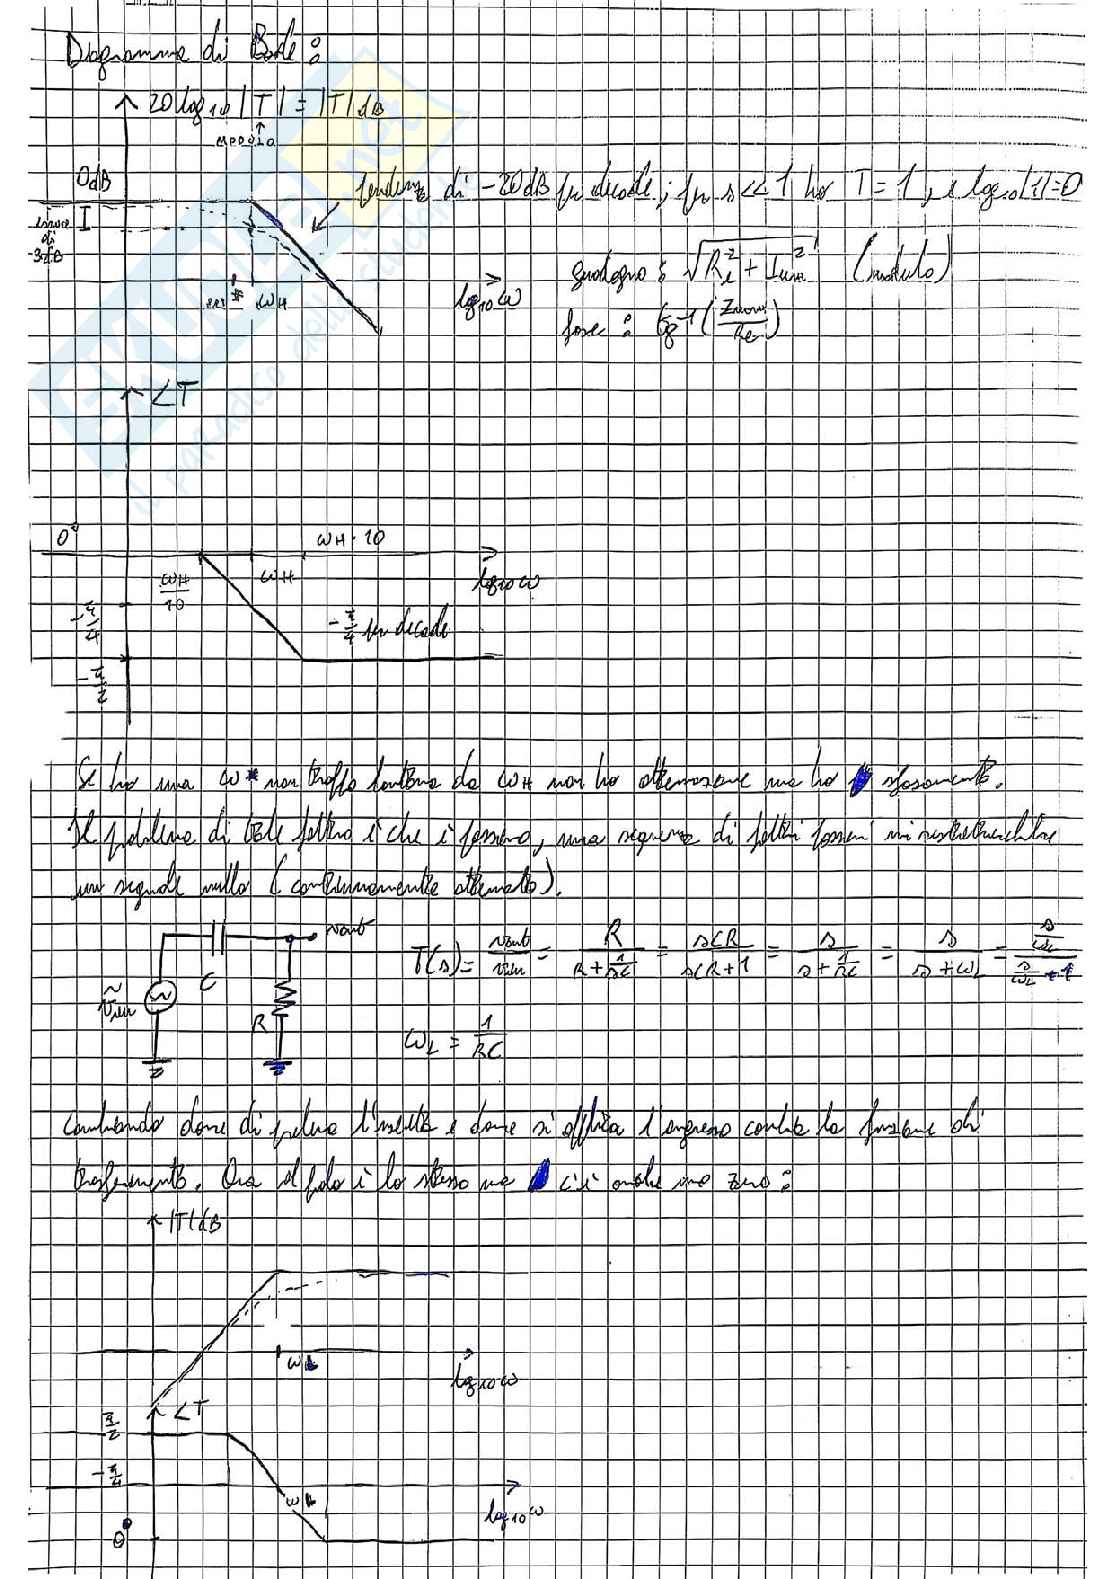 Diagramma di Bode:
20 log10 |T| = |T| dB
modulo
0dB
pendenza di -20dB per decade; per s << 1 ho T = 1, e log10|1|=0
errore di -3dB
guadagno: √(Re² + Imm²) (modulo)
ω* ωH
log10 ω
fase: tg⁻¹(Imm/Re)
∠T
0°
ωH·10
ωH/10
ωH
log10 ω
-π/4
-π/4 per decade
-π/2
Se ho una ω* non troppo lontana da ωH non ho attenuazione ma ho sfasamento.
Il problema di tale filtro è che è passivo, una sequenza di filtri passivi mi restituirebbe
un segnale nullo (continuamente attenuato).
vout
C
vin
R
T(s) = vout/vin = R/(R + 1/sC) = sCR/(sCR+1) = s/(s + 1/RC) = s/(s + ωL) = (s/ωL)/(s/ωL + 1)
ωL = 1/RC
Cambiando dove si preleva l'uscita e dove si applica l'ingresso cambia la funzione di
trasferimento. Ora il polo è lo stesso ma c'è anche uno zero:
|T| dB
ωL
log10 ω
∠T
π/2
-π/4
ωL
log10 ω
0°
il paradiso dello studente